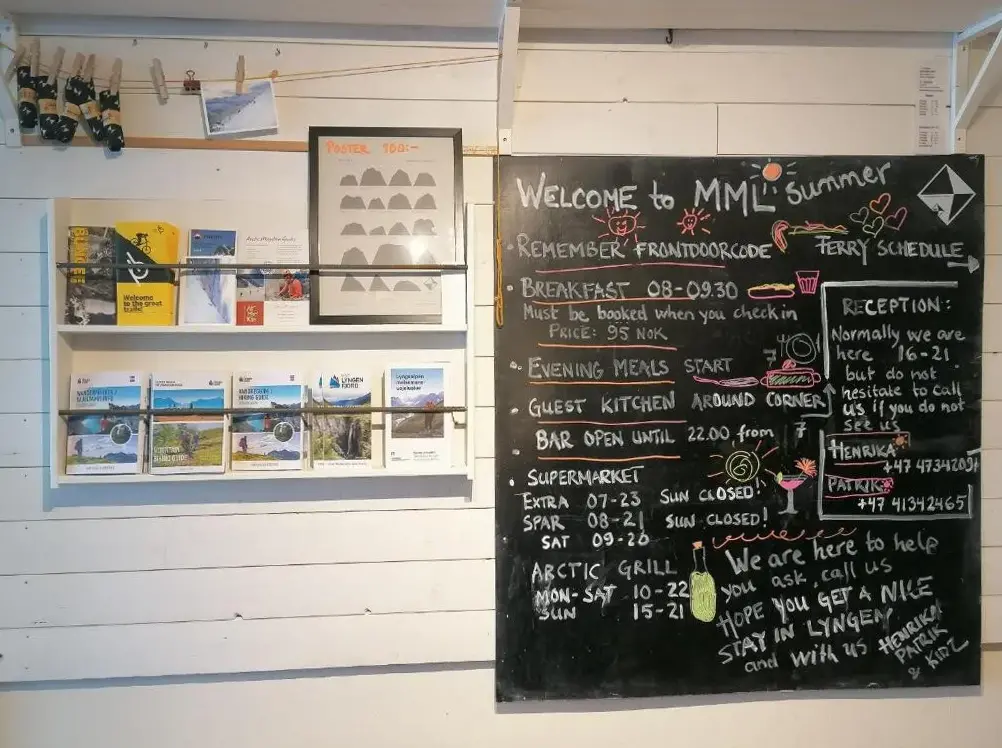 POSTER 100:-
Welcome
to the great
trails!
LYNGEN
FJORD
Lyngenalpen
WELCOME to MML summer
REMEMBER FRONTDOORCODE
FERRY SCHEDULE
BREAKFAST 08-09.30
Must be booked when you check in
PRICE: 95 NOK
EVENING MEALS START
GUEST KITCHEN AROUND CORNER
BAR OPEN UNTIL 22.00 from 7
SUPERMARKET
EXTRA 07-23 SUN CLOSED!
SPAR 08-21 SUN CLOSED!
SAT 09-20
ARCTIC GRILL
MON-SAT 10-22
SUN 15-21
RECEPTION:
Normally we are
here 16-21
but do not
hesitate to call
us if you do not
see us
HENRIKA
PATRIK
+47 41342465
We are here to help
you ask, call us
HOPE YOU GET A NICE
STAY IN LYNGEN
and with us
HENRIKA
PATRIK
& KIDZ